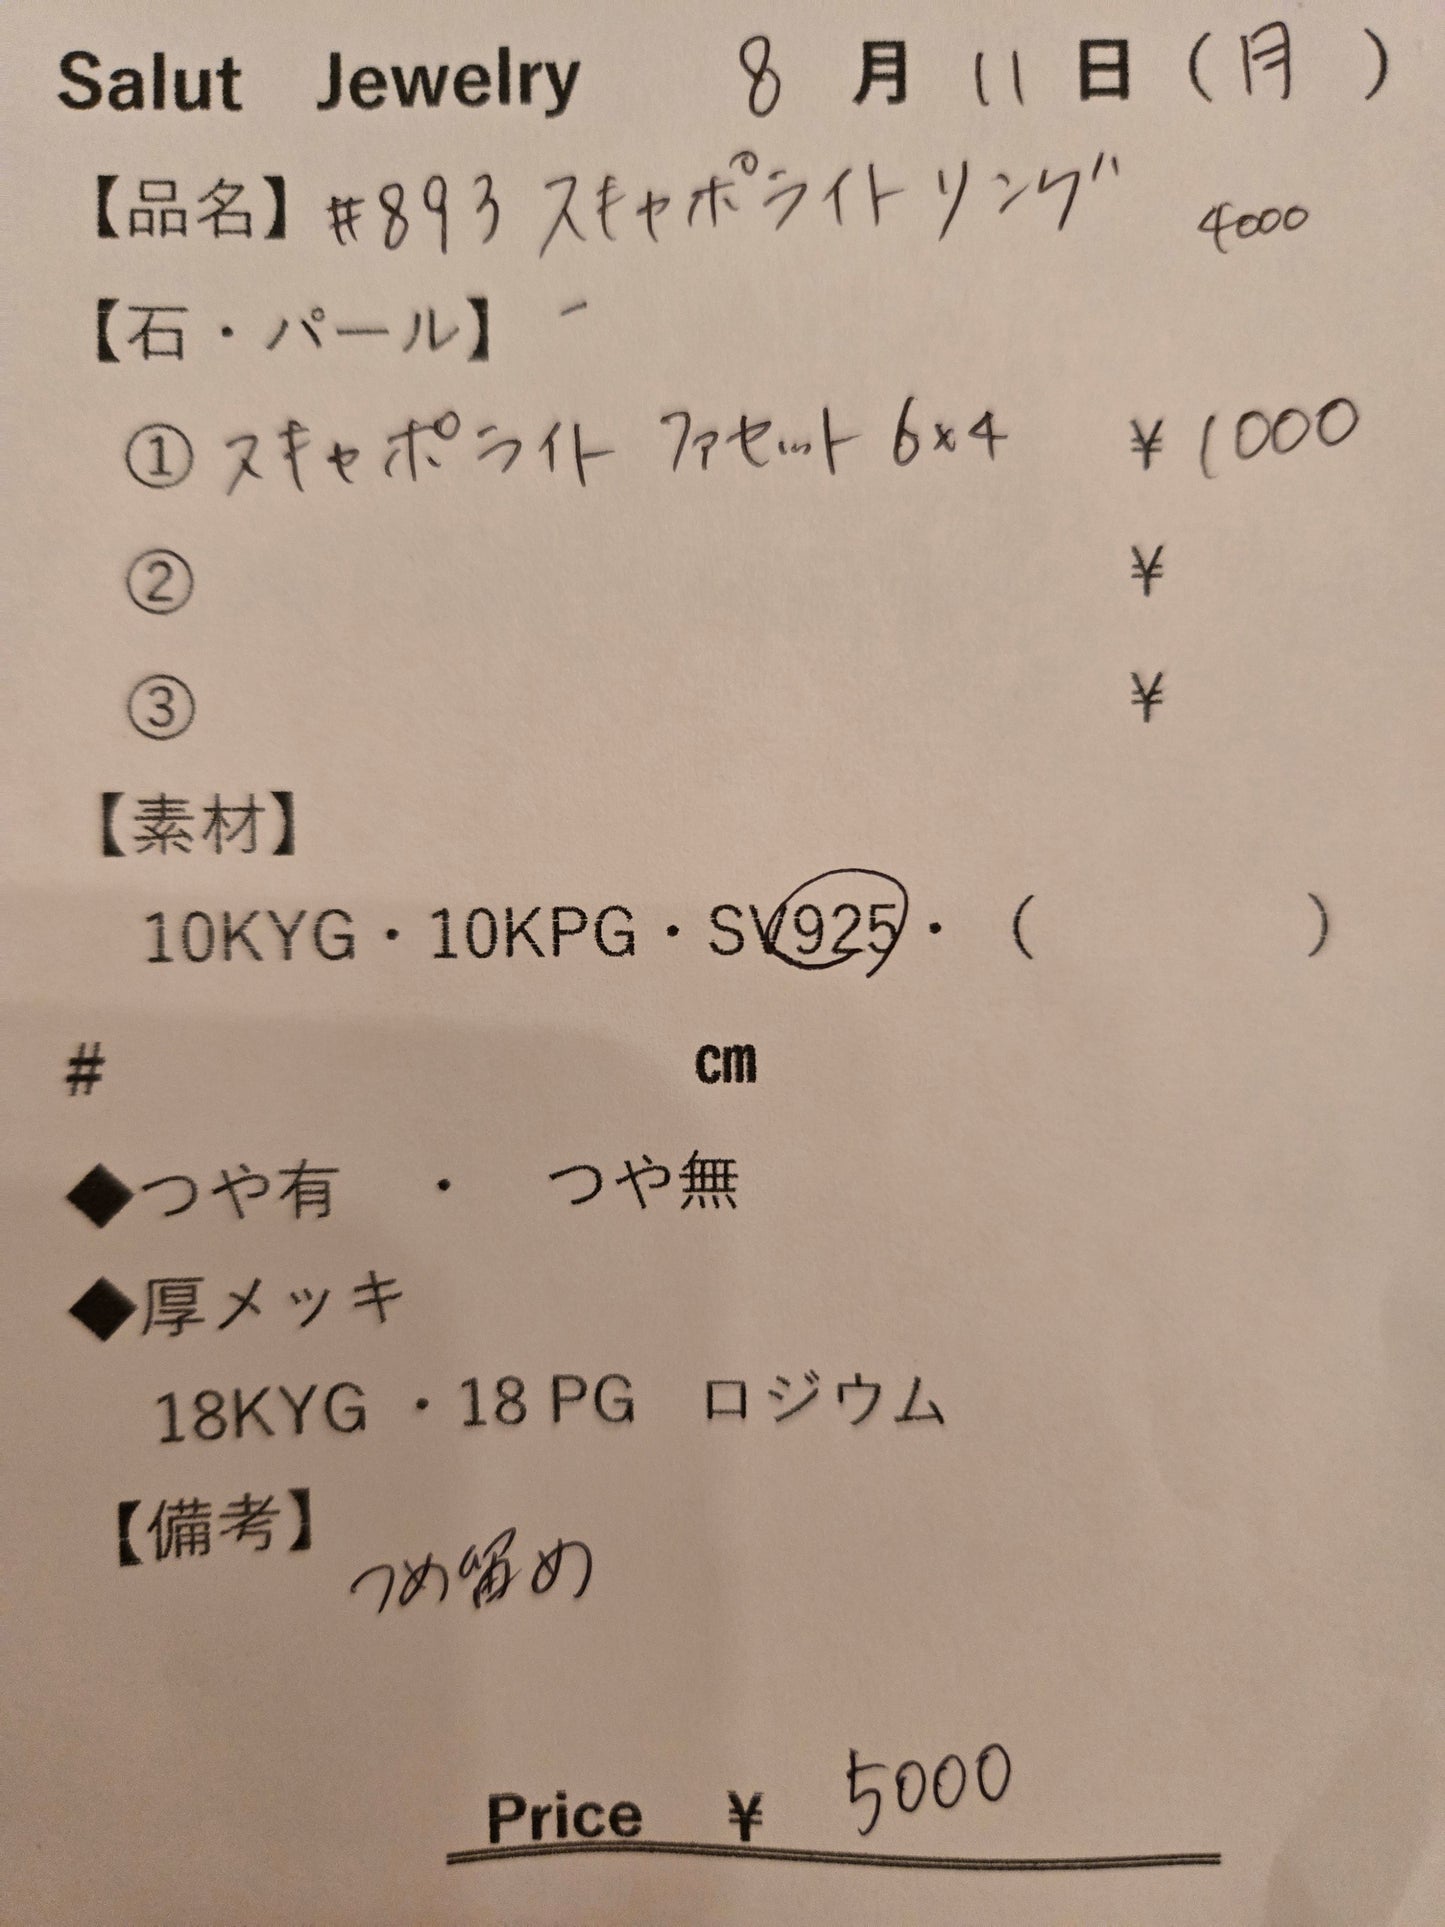 Salut Jewelry 8 月 11 日 (月)
【品名】 #893 スキャポライト リング 4000
【石・パール】
① スキャポライト ファセット 6×4 ¥ 1000
② ¥
③ ¥
【素材】
10KYG・10KPG・SV925・( )
# cm
◆つや有 ・ つや無
◆厚メッキ
18KYG ・18 PG ロジウム
【備考】
つめ留め
Price ¥ 5000